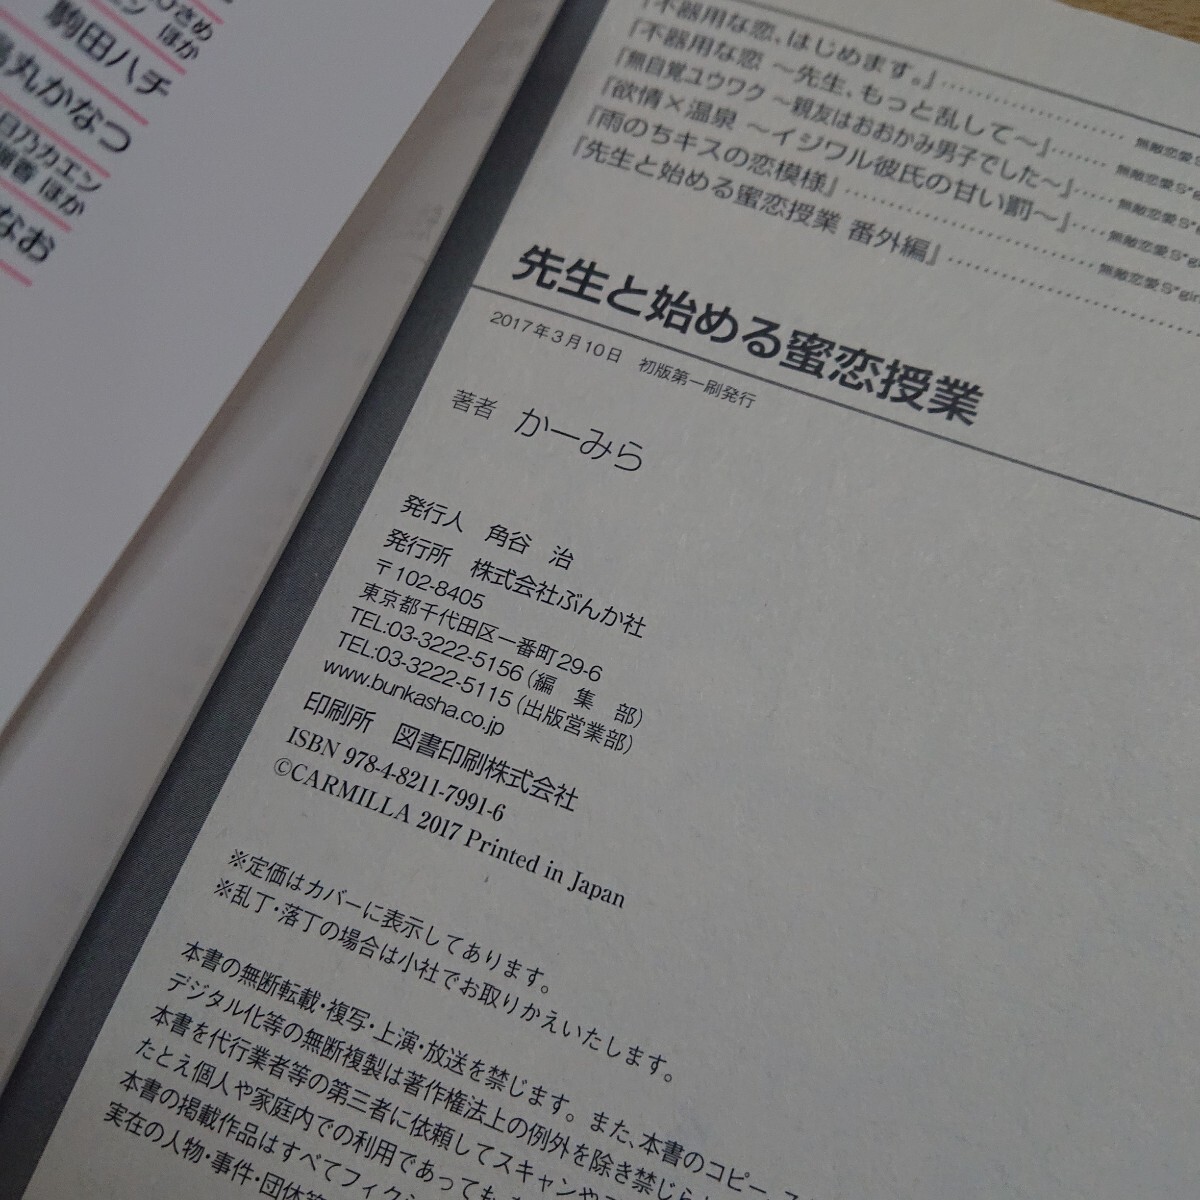 ほか
駒田ハチ
丸かなつ
日乃カエン
ほか
なお
『不器用な恋、はじめます。』
『不器用な恋 〜先生、もっと乱して〜』
『無自覚ユウワク 〜親友はおおかみ男子でした〜』
『欲情×温泉 〜イジワル彼氏の甘い罰〜』
『雨のちキスの恋模様』
『先生と始める蜜恋授業 番外編』
無敵恋愛S
無敵恋愛S*gi
無敵恋愛S*gi
無敵恋愛S*gi
無敵恋愛S*gir
先生と始める蜜恋授業
2017年3月10日 初版第一刷発行
著者 かーみら
発行人 角谷 治
発行所 株式会社ぶんか社
〒102-8405
東京都千代田区一番町29-6
TEL:03-3222-5156(編 集 部)
TEL:03-3222-5115(出版営業部)
www.bunkasha.co.jp
印刷所 図書印刷株式会社
ISBN 978-4-8211-7991-6
©CARMILLA 2017 Printed in Japan
※定価はカバーに表示してあります。
※乱丁・落丁の場合は小社でお取りかえいたします。
本書の無断転載・複写・上演・放送を禁じます。また、本書のコピー、ス
デジタル化等の無断複製は著作権法上の例外を除き禁じら
本書を代行業者等の第三者に依頼してスキャンや
たとえ個人や家庭内での利用であっても、
本書の掲載作品はすべてフィク
実在の人物・事件・団体等